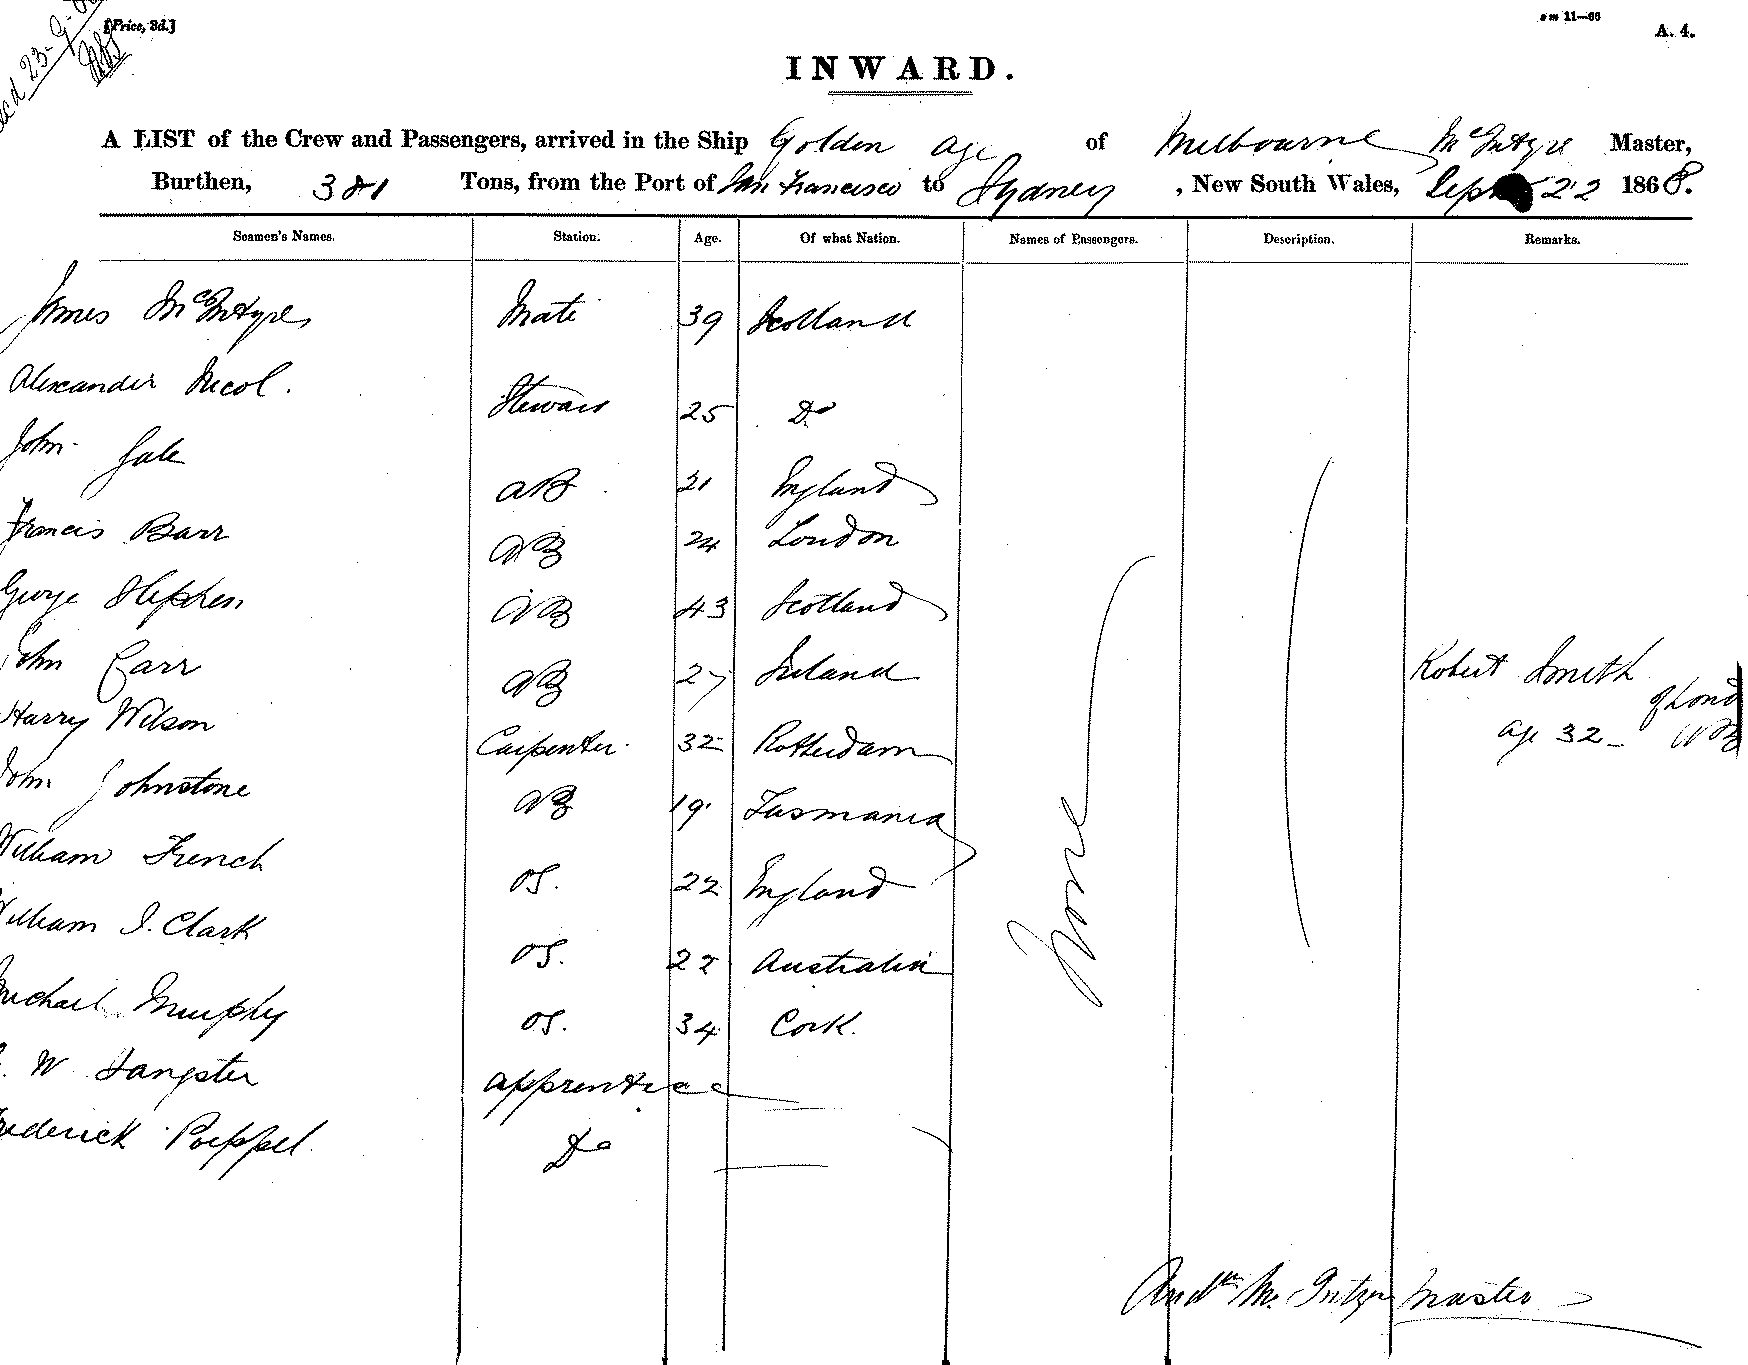 23-9-
[Price, 3d.]
sm 11—66
A. 4.
INWARD.
A LIST of the Crew and Passengers, arrived in the Ship Golden Age of Melbourne McIntyre Master,
Burthen, 381 Tons, from the Port of San Francisco to Sydney, New South Wales, Sept 22 1868.
Seamen's Names. Station. Age. Of what Nation. Names of Passengers. Description. Remarks.
James McIntyre Mate 39 Scotland
Alexander Nicol. Steward 25 Do
John Gale AB 21 England
Francis Barr AB 24 London
George Stephen AB 43 Scotland
John Carr AB 27 Ireland
Harry Wilson Carpenter 32 Rotterdam
John Johnstone AB 19 Tasmania
William French OS. 22 England
William I. Clark OS. 22 Australia
Michael Murphy OS. 34 Cork.
W Sangster apprentice
Frederick Poeppel. Do
None
Robert Smith
of Lond
age 32 - AB
Andw McIntyre Master